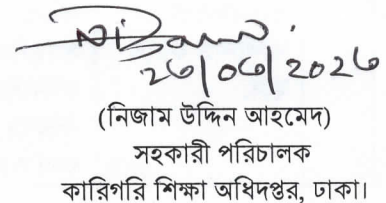 ২৬/০৩/২০২৬
(নিজাম উদ্দিন আহমেদ)
সহকারী পরিচালক
কারিগরি শিক্ষা অধিদপ্তর, ঢাকা।